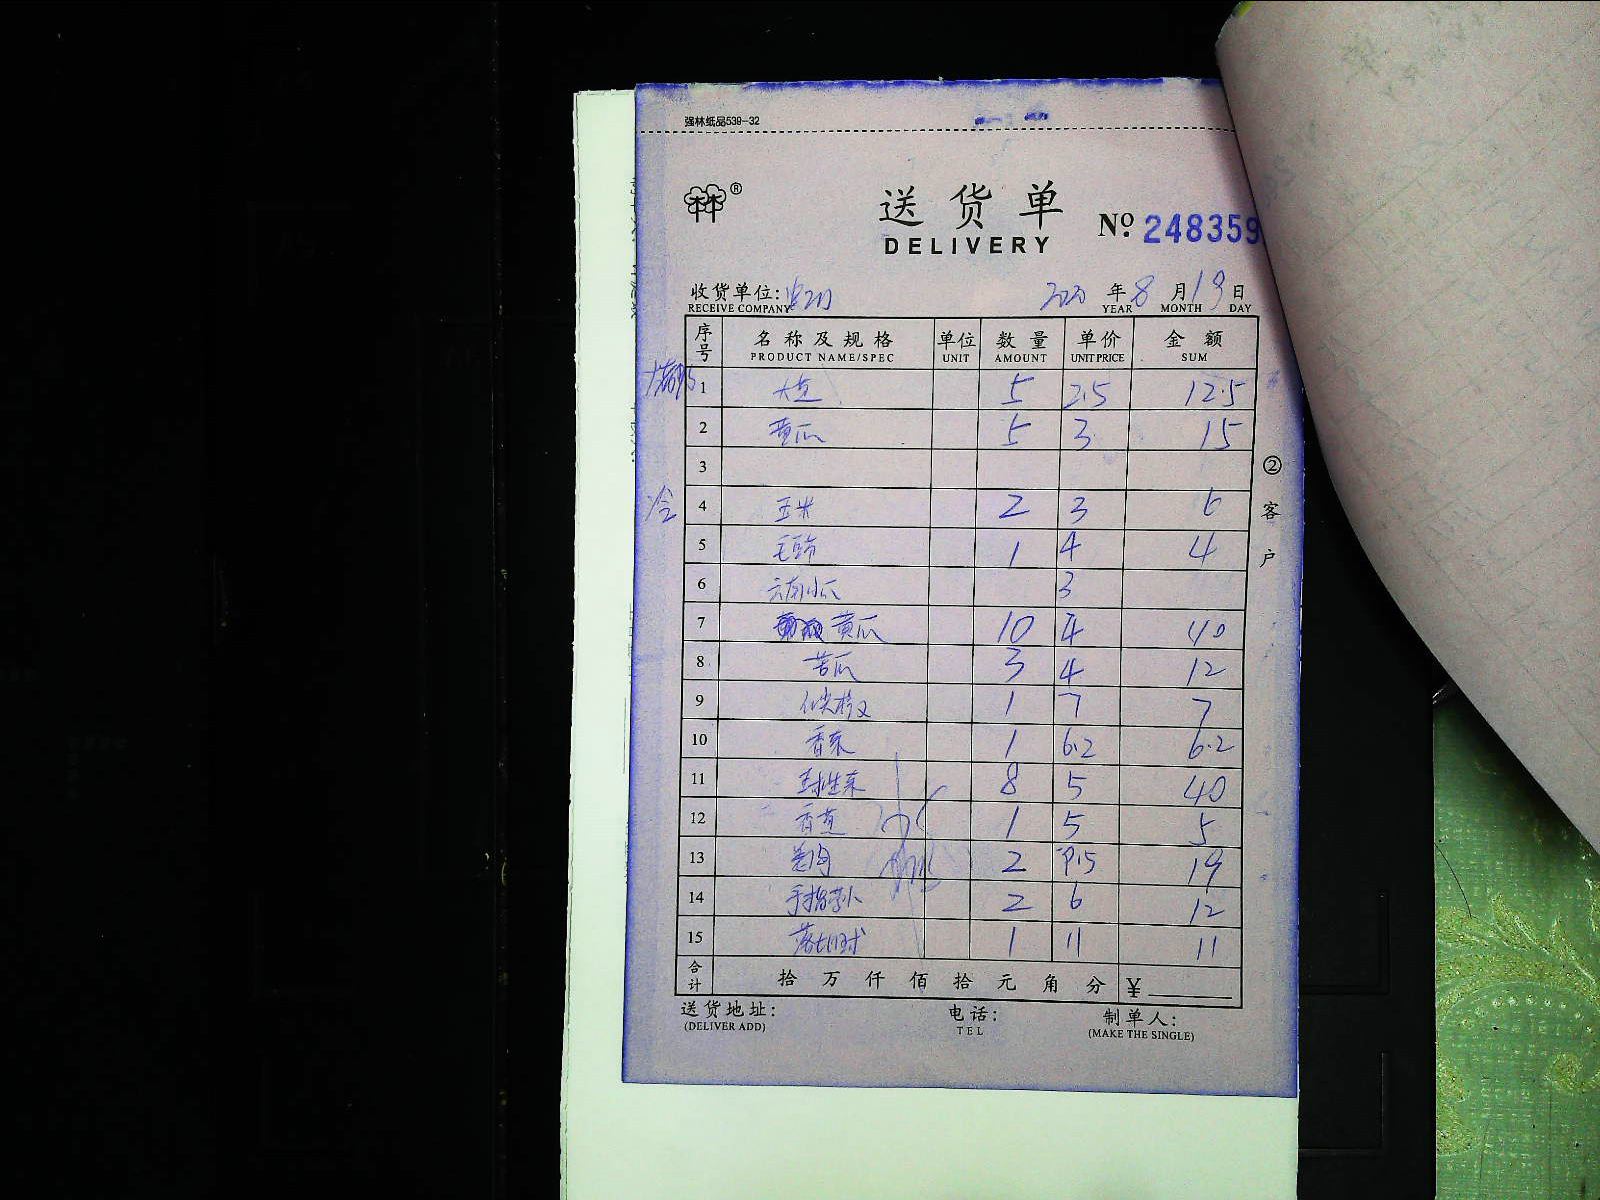 强林纸品539-32
林®
送货单
DELIVERY
No. 248359
收货单位: 2020 年 8 月 19 日
RECEIVE COMPANY YEAR MONTH DAY
序号 名称及规格 单位 数量 单价 金额
PRODUCT NAME/SPEC UNIT AMOUNT UNIT PRICE SUM
1 大芒 5 2.5 12.5
2 黄瓜 5 3 15
3
冷 4 玉米 2 3 6
5 毛豆节 1 4 4
6 云南小瓜 3
7 黄瓜 10 4 40
8 苦瓜 3 4 12
9 1 7 7
10 香菜 1 6.2 6.2
11 球生菜 8 5 40
12 香芹 1 5 5
13 2 9.5 19
14 手指萝卜 2 6 12
15 1 11 11
合计 拾 万 仟 佰 拾 元 角 分 ¥
② 客户
送货地址: 电话: 制单人:
(DELIVER ADD) TEL (MAKE THE SINGLE)